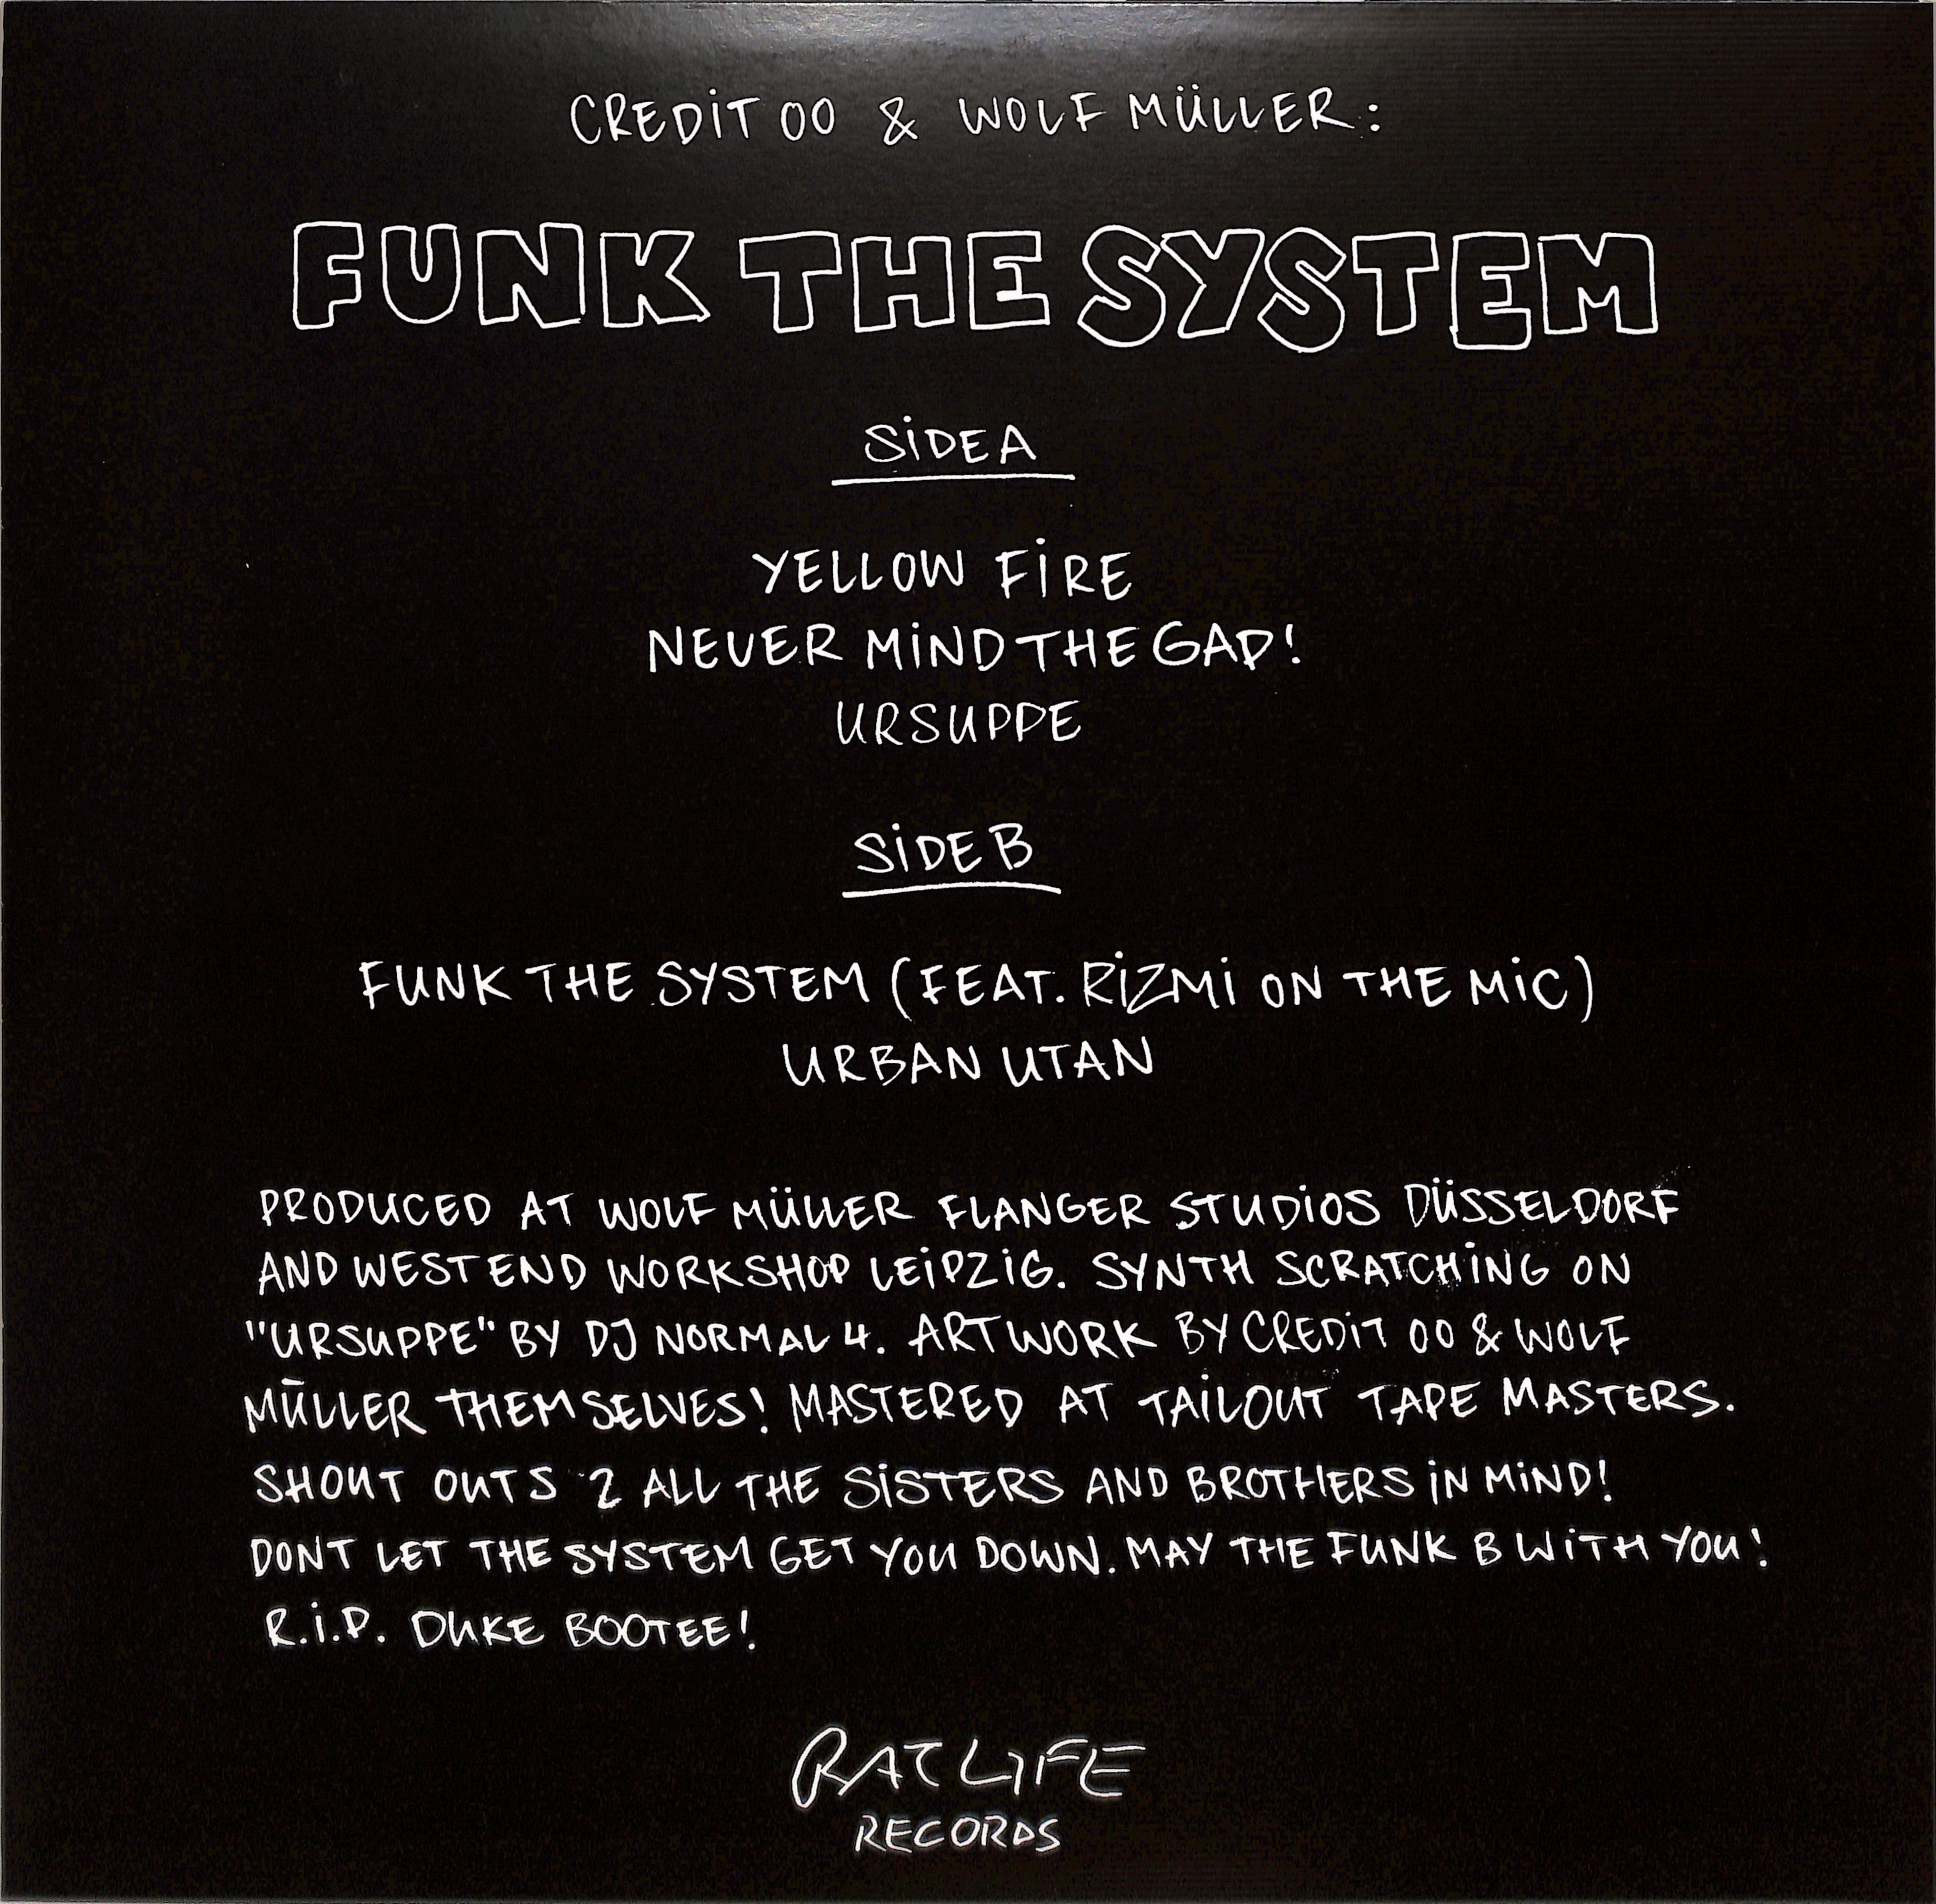 CREDIT 00 & WOLF MÜLLER:
FUNK THE SYSTEM
SIDE A
YELLOW FIRE
NEVER MIND THE GAP!
URSUPPE
SIDE B
FUNK THE SYSTEM (FEAT. RIZMI ON THE MIC)
URBAN UTAN
PRODUCED AT WOLF MÜLLER FLANGER STUDIOS DÜSSELDORF
AND WEST END WORKSHOP LEIPZIG. SYNTH SCRATCHING ON
"URSUPPE" BY DJ NORMAL 4. ARTWORK BY CREDIT 00 & WOLF
MÜLLER THEMSELVES! MASTERED AT TAILOUT TAPE MASTERS.
SHOUT OUTS 2 ALL THE SISTERS AND BROTHERS IN MIND!
DONT LET THE SYSTEM GET YOU DOWN. MAY THE FUNK B WITH YOU!
R.I.P. DUKE BOOTEE!
RAT LIFE
RECORDS